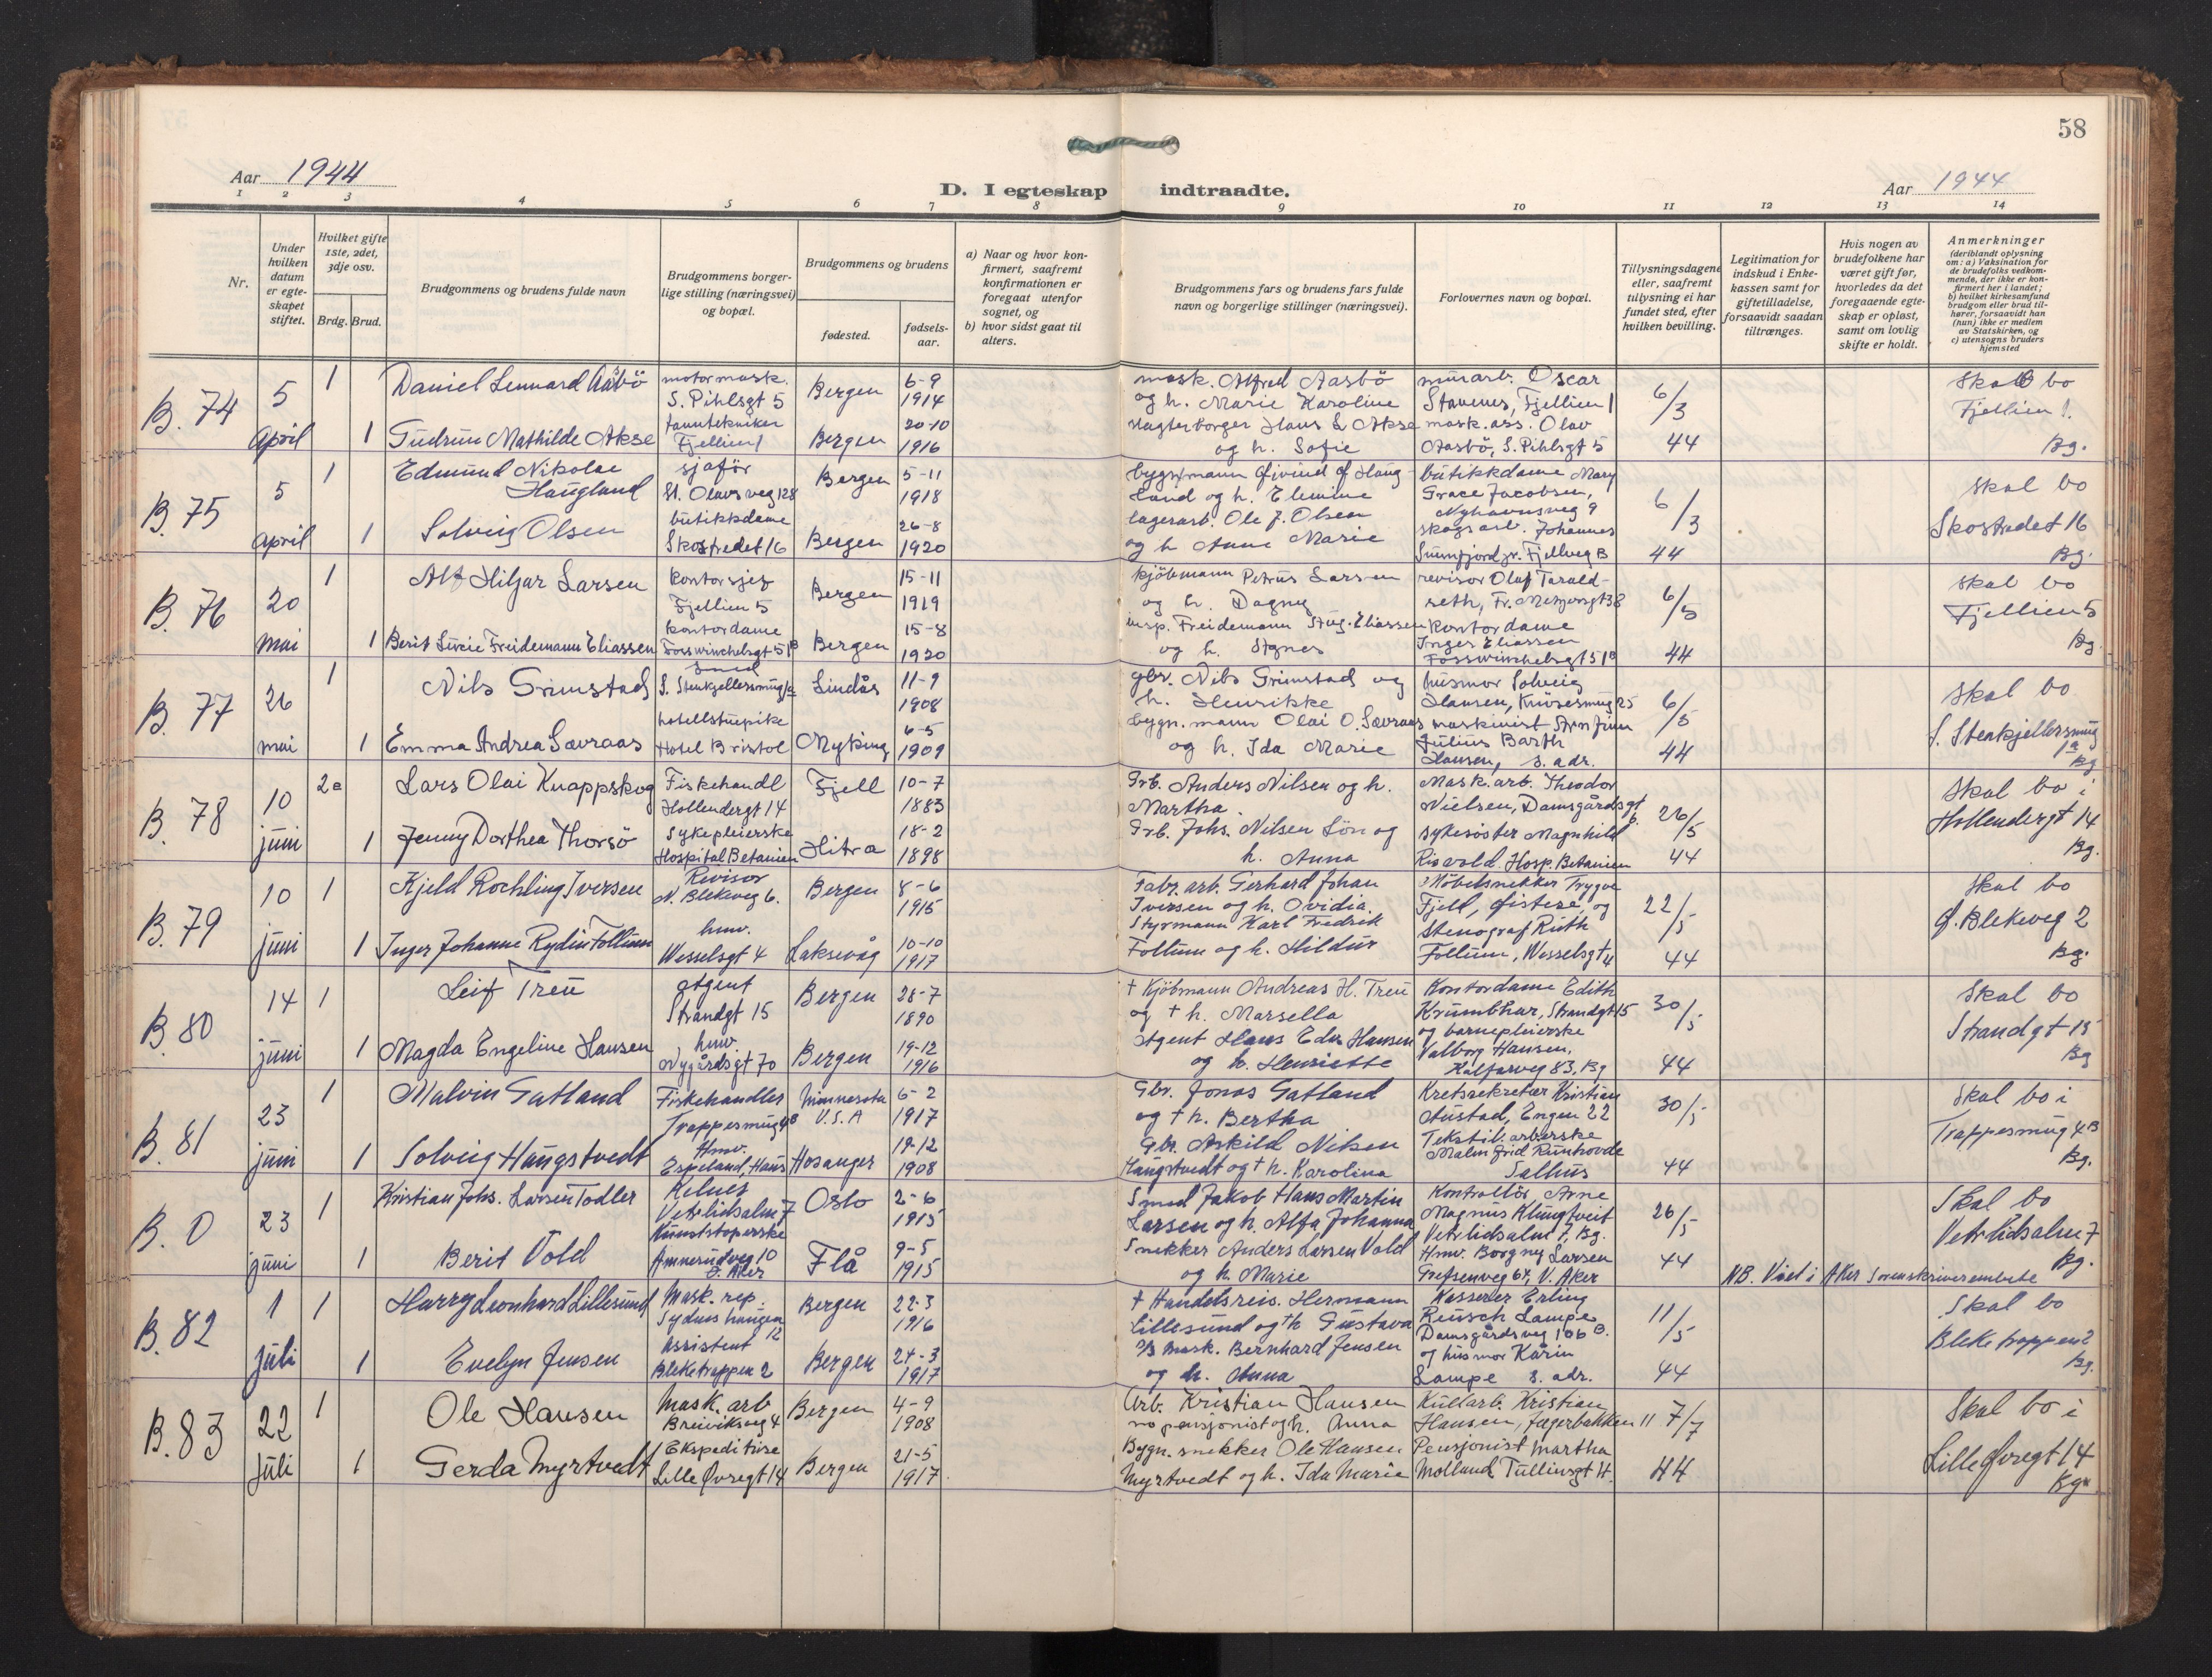 58
Aar 1944
D. I egteskap indtraadte.
Aar 1944
1 2 3 4 5 6 7 8 9 10 11 12 13 14
Nr.
Under hvilken datum er egteskapet stiftet.
Hvilket gifte 1ste, 2det, 3dje osv.
Brdg. Brud.
Brudgommens og brudens fulde navn
Brudgommens borgerlige stilling (næringsvei) og bopæl.
Brudgommens og brudens
fødested.
fødselsaar.
a) Naar og hvor konfirmert, saafremt konfirmationen er foregaat utenfor sognet, og
b) hvor sidst gaat til alters.
Brudgommens fars og brudens fars fulde navn og borgerlige stillinger (næringsvei).
Forlovernes navn og bopæl.
Tillysningsdagene eller, saafremt tillysning ei har fundet sted, efter hvilken bevilling.
Legitimation for indskud i Enkekassen samt for giftetilladelse, forsaavidt saadan tiltrænges.
Hvis nogen av brudefolkene har været gift før, hvorledes da det foregaaende egteskap er opløst, samt om lovlig skifte er holdt.
Anmerkninger (deriblandt oplysning om: a) Vaksination for de brudefolks vedkommende, der ikke er konfirmert her i landet; b) hvilket kirkesamfund brudgom eller brud tilhører, forsaavidt han (hun) ikke er medlem av Statskirken, og c) utensogns bruders hjemsted
B. 74 5 April
1 Daniel Lennard Aasbö motormask. S. Pihlsgt 5 Bergen 6-9 1914
mask. Alfred Aasbö og h. Marie Karoline
murarb. Oscar Stavenes, Fjellien 1
6/3 44
Skal bo Fjellien 1. Bg.
1 Gudrun Mathilde Akse tanntekniker Fjellien 1 Bergen 20-10 1916
slagterborger Hans L Akse og h. Sofie
mask.ass. Olav Aasbö, S. Pihlsgt 5
B. 75 5 April
1 Edmund Nikolai Haugland sjaför St. Olavs veg 128 Bergen 5-11 1918
bygn.mann Øivind Haugland og h. Elemine
butikkdame Mary Grace Jacobsen, Nyhavnsveg 9
6/3 44
Skal bo Skostredet 16 Bg.
1 Solveig Olsen butikkdame Skostredet 16 Bergen 26-8 1920
lagerarb. Ole J. Olsen og h Anne Marie
skogsarb. Johannes Sunnfjord jr. Fjellveg B
B. 76 20 mai
1 Alf Hiljar Larsen kontorsjef Fjellien 5 Bergen 15-11 1919
kjöbmann Petrus Larsen og h. Dagny
revisor Olaf Taraldseth, Fr. Meltzersgt 38
6/5 44
Skal bo Fjellien 5 Bg.
1 Berit Lucie Freidemann Eliassen kontordame Fosswinchelsgt 51B Bergen 15-8 1920
insp. Freidemann Stug. Eliassen og h. Agnes
kontordame Inger Eliassen Fosswinchelsgt 51B
B. 77 26 mai
1 Nils Grimstad Smed S. Stenkjellersmug 1a Lindås 11-9 1908
gbr. Nils Grimstad og h. Henrikke
husmor Solveig Hansen, Knøsesmug 25
6/5 44
Skal bo S. Stenkjellersmug 1a Bg
1 Emma Andrea Sævraas hotellstuepike Hotel Bristol Myking 6-5 1909
bygn.mann Olai O. Sævraas og h. Ida Marie
maskinist Arn Finn Julius Barth Hansen, s. adr.
B. 78 10 juni
2a Lars Olai Knappskog Fiskehandl Hollendergt 14 Fjell 10-7 1883
Grb. Anders Nilsen og h. Martha.
Mask.arb. Theodor Nielsen, Damsgårdsgt 6.
26/5 44
Skal bo i Hollendergt 14 Bg.
1 Jenny Dorthea Thorsö Sykepleierske Hospital Betanien Hitra 18-2 1898
Grb. Johs. Nilsen Lön og h. Anna
sykesöster Magnhild Risvold. Hosp. Betanien
B. 79 10 juni
1 Kjeld Rochling Iversen Revisor N. Blekeveg 6. Bergen 8-6 1915
Fabr. arb. Gerhard Johan Iversen og h. Ovidia.
Möbelsnekker Trygve Fjell, Øistese, og
22/5 44
Skal bo Ø. Blekeveg 2 Bg.
1 Inger Johanne Rydin Follum hmv. Wesselsgt 4 Laksevåg 10-10 1917
Styrmann Karl Fredrik Follum og h. Hildur
Stenograf Ruth Follum, Wesselsgt 4
B. 80 14 juni
1 Leif Treu Agent Strandgt 15 Bergen 28-7 1890
† Kjöbmann Andreas H. Treu og † h. Marsella
Kontordame Edith Krumbhar, Strandgt 15
30/5 44
Skal bo Strandgt 15 Bg
1 Magda Engeline Hansen hmv. Nygårdsgt 70 Bergen 19-12 1916
Agent Hans Edv. Hansen og h. Henriette
og barnepleierske Valborg Hansen. Kalfarveg 83. Bg
B. 81 23 juni
1 Malvin Gatland Fiskehandler Trappesmug 4B Minnesota U.S.A 6-2 1917
Gbr. Jonas Gatland og † h. Bertha
Kretssekretær Kristian Austad, Engen 22
30/5 44
Skal bo i Trappesmug 4B Bg.
1 Solveig Haugstvedt Hmv. Espeland, Haus Hosanger 19-12 1908
Gbr. Askild Nilsen Haugstvedt og † h. Karolina
Tekstil. arberske Malmfrid Runhovde Salhus
B. 0 23 juni
1 Kristian Johs. Larsen Todler Kelner Vetrlidsalm 7 Oslo 2-6 1915
Smed Jakob Hans Martin Larsen og h. Alfa Johanna
Kontrollör Arne Magnus Klungtveit Vetrlidsalm 7, Bg.
26/5 44
Skal bo Vetrlidsalm 7 Bg.
1 Berit Vold Kunststoperske Ammerudveg 10 Ö. Aker Flå 9-5 1915
Snekker Anders Larsen Vold og h. Marie
Hmv. Borgny Larsen Grefsenveg 64, V. Aker
NB. Viet i Aker Sorenskriverembete
B. 82 1 juli
1 Harry Leonhard Lillesund Mask. rep. Sydneshaugen 12 Bergen 22-3 1916
† Handelsreis. Hermann Lillesund og † h Gustava
Kasserer Erling Reusch Lampe Damsgårdsveg 106 B.
11/5 44
Skal bo Bleketrappen 2 Bg.
1 Evelyn Jensen Assistent Bleketrappen 2 Bergen 24-3 1917
Mask. Bernhard Jensen og h. Anna
og husmor Kårin Lampe s. adr.
B. 83 22 juli
1 Ole Hansen Mask. arb Breiviksveg 4 Bergen 4-9 1908
Arb. Kristian Hansen no pensjonist og h. Anna
Kullarb. Kristian Hansen, Jægerbakken 11
7/7 44
Skal bo i Lille Øvregt 14 Bg.
1 Gerda Myrtvedt Ekspeditrise Lille Øvregt 14 Bergen 21-5 1917.
Bygn. snekker Ole Hansen Myrtvedt og h. Ida Marie
Pensjonist Martha Molland. Tullinsgt 4.